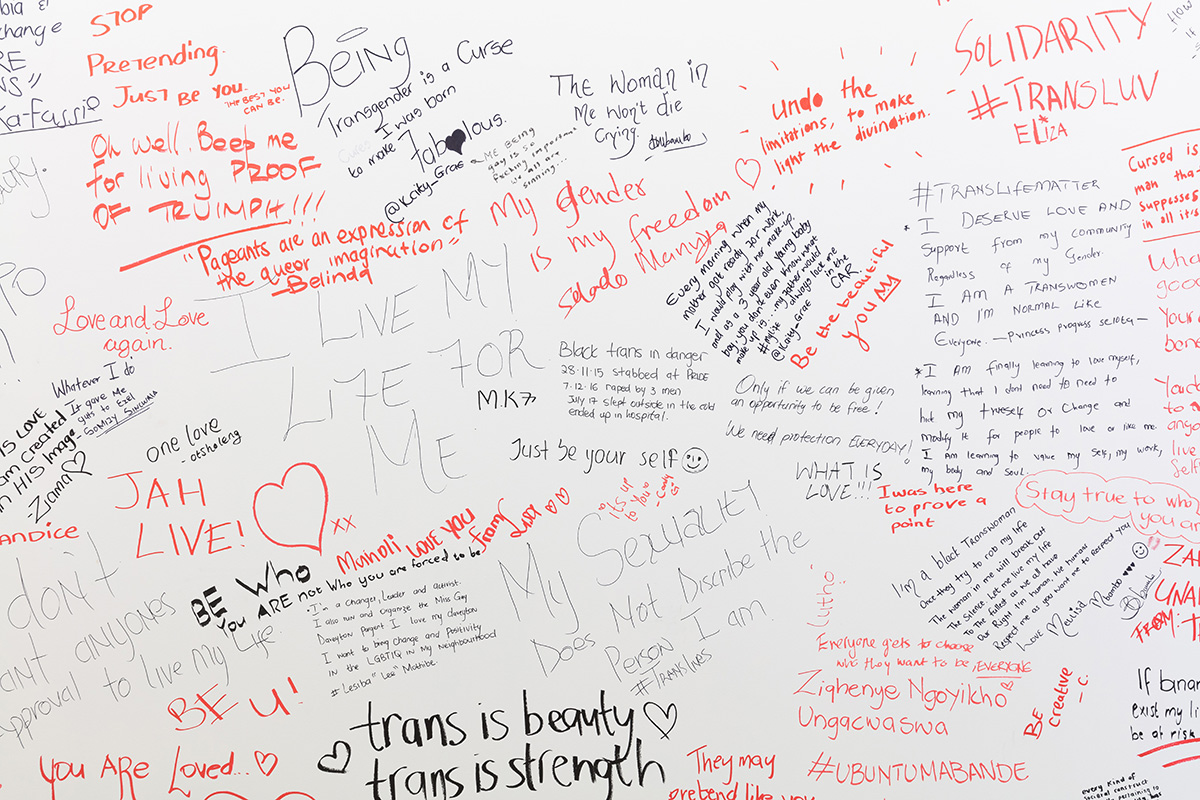 STOP
Pretending.
JUST BE YOU.
THE BEST YOU
CAN BE.
Oh well. Beep me
for living PROOF
OF TRUIMPH!!!
Being
Transgender is a Curse
I was born
to make fabulous.
@Kaity_Grae
ME BEING
gay is so
fucking important
we all are
sinning...
The Woman in
Me Won't die
Crying.
undo the
limitations, to make
light the divination.
SOLIDARITY
#TRANSLUV
ELIZA
"Pageants are an expression of
the queer imagination"
-Belinda
My gender
is my freedom
I LIVE MY
LIFE FOR
ME
M.K7
Love and Love
again.
Every morning when my
mother got ready for work,
I would play with her make-up.
and as a 3 year old young baby
boy, you don't even know what
make up is... my father would
always lock me
in the
CAR.
#mylife
@Kaity_Grae
Be the beautiful
you MY
#TRANSLIFEMATTER
I DESERVE LOVE AND
Support from my community
Regardless of my Gender.
I AM A TRANSWOMEN
AND I'M NORMAL LIKE
Everyone. -Princess progress selota-
*I AM finally learning to love myself,
learning that I dont need to need to
but my trueself or Change and
modify it for people to love or like me.
I am learning to value my self, my work,
my body and soul.
Cursed is
man tha
suppresses
in all its
Black trans in danger
28.11.15 stabbed at PRIDE
7.12.16 raped by 3 men
July 17 slept outside in the cold
ended up in hospital.
Only if we can be given
an opportunity to be free!
We need protection EVERYDAY!
WHAT IS
LOVE!!!
I was here
to prove a
point
Just be your self
Whatever I do
It gave Me
-SOMIZY SINWALA
IS LOVE
am created
in HIS Image
Ziama
one love
-otsholeng
JAH
LIVE!
XX
ANDICE
it's up
to you
-Candy
Stay true to who
you are
don't
ant anyones
Approval to live My Life
BE Who
You ARE not Who you are forced to be
Muinoli LOVE YOU
From
"I'm a Changer, Leader and activist.
I also run and organize the Miss Gay
Daveyton Pagent I love my daveyton
I want to bring change and Positivity
in the LGBTIQ in My Neighbourhood
#Lesiba "Lee" Mothibe
My Sexuality
Does Not Discribe the
Person I am.
#TRANSLIVES
I'm a black Transwoman
Once they try to rob my life
The woman in me will break out
The Silence. Let me live my life
To the fullest as we all have
Our Right I'm human, we human
Respect me as you want me to Respect you
Love
Everyone gets to choose
who they want to be, EVERYONE
Ziqhenye Ngoyikho
Ungacwaswa
BE
creative
-C.
BE U!
you ARe Loved...
trans is beauty
trans is strength
They may
pretend like you
#UBUNTUMABANDE
If banan
exist my li
be at risk